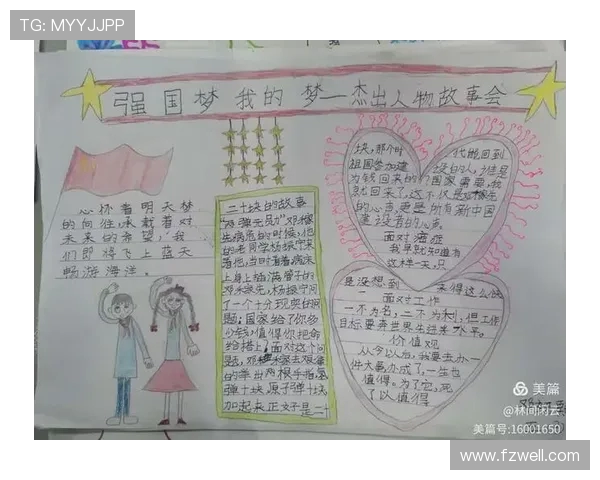 TG: MYYJJPP
强国梦 我的 梦—杰出人物故事会
心怀着明天梦
的向往,承载着对
未来的希望,我
们即将飞上蓝天
畅游海洋。
二十块的故事
病危的时候,他
的老同学杨振宁来
看他,当时看着病床
上身上插满管子的
邓稼先,杨振宁问
了一个十分现实的问
题:国家给了你多
少钱,值得你把命
给搭上,面对这个问
弹十块,原子弹十块
加起来正好是二十
块,那个时
代能回到
祖国参加建
设的人,谁是
为钱回来的?国家需要,我
就回来了,这不仅是邓稼先
的心声,更是所有新中国
建设者的心声
面对海涯
我早就知道有
这样一天,只
是没想到
来得这么快
面对工作
一不为名,二不为利,但工作
目标要奔世界先进水平。
价值观
从今以后,我要去办一
件大事,办成了,一生也
值得。为了它,死
了以值得
美篇
@林间闲云
美篇号:16001650
www.fzwell.com